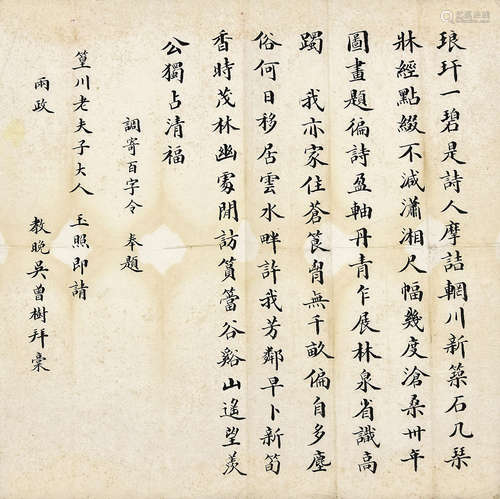 琅玕一碧是詩人摩詰輞川新築石几琹
牀經點綴不減瀟湘尺幅幾度滄桑卅年
圖畫題徧詩盈軸丹青乍展林泉省識高
躅　我亦家住蒼筤胷無千畝偏自多塵
俗何日移居雲水畔許我芳鄰早卜新筍
香時茂林幽處閒訪篔簹谷谿山遙望羨
公獨占清福
調寄百字令　奉題
篁川老夫子大人　玉照即請
兩政　教晚吳曾樹拜稾